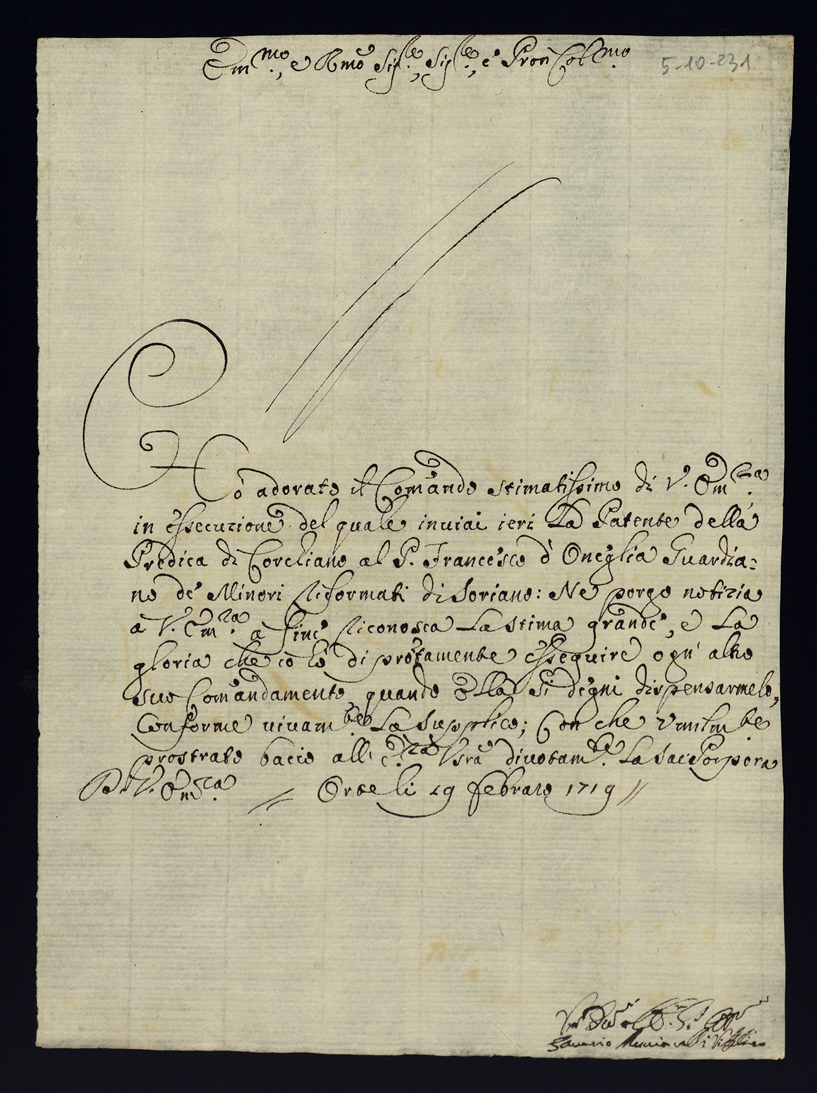 Em.mo, e Rmõ Sig.re, Sig.re, e Pron Col.mo
5-10-231
Hò adorato il Com̃ando stimatissimo di V. Em.za
in essecuzione del quale inviai ieri La Patente della
Predica di Corchiano al P. Francesco d'Oneglia Guardia=
no de' Minori Riformati di Soriano: Ne porgo notizia
a V. Em.za à fine Riconosca La stima grande, e La
gloria che ò lo di prontamente essequire ogn' altro
suo Com̃andamento quando Ella si degni dispensarmelo,
Conforme vivam.te La supplico; Con che Umilm.te
prostrato bacio all' E.za Vsra divotam.te La Sac Porpora
D. V. Em.za // Orte li 19 Febraro 1719 //